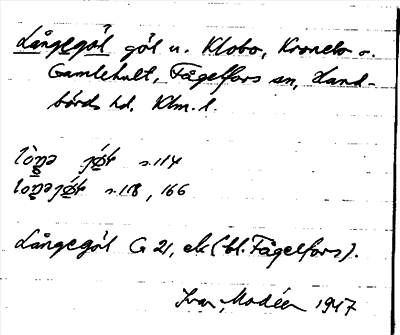 Långegöl göl u. Klobo, Kronebo o.
Gamlehult, Fågelfors sn, Hand-
börds hd, Klm. l.
s. 114
s. 118, 166
Långegöl G 21, ek (bl. Fågelfors).
Ivar Modéer 1947